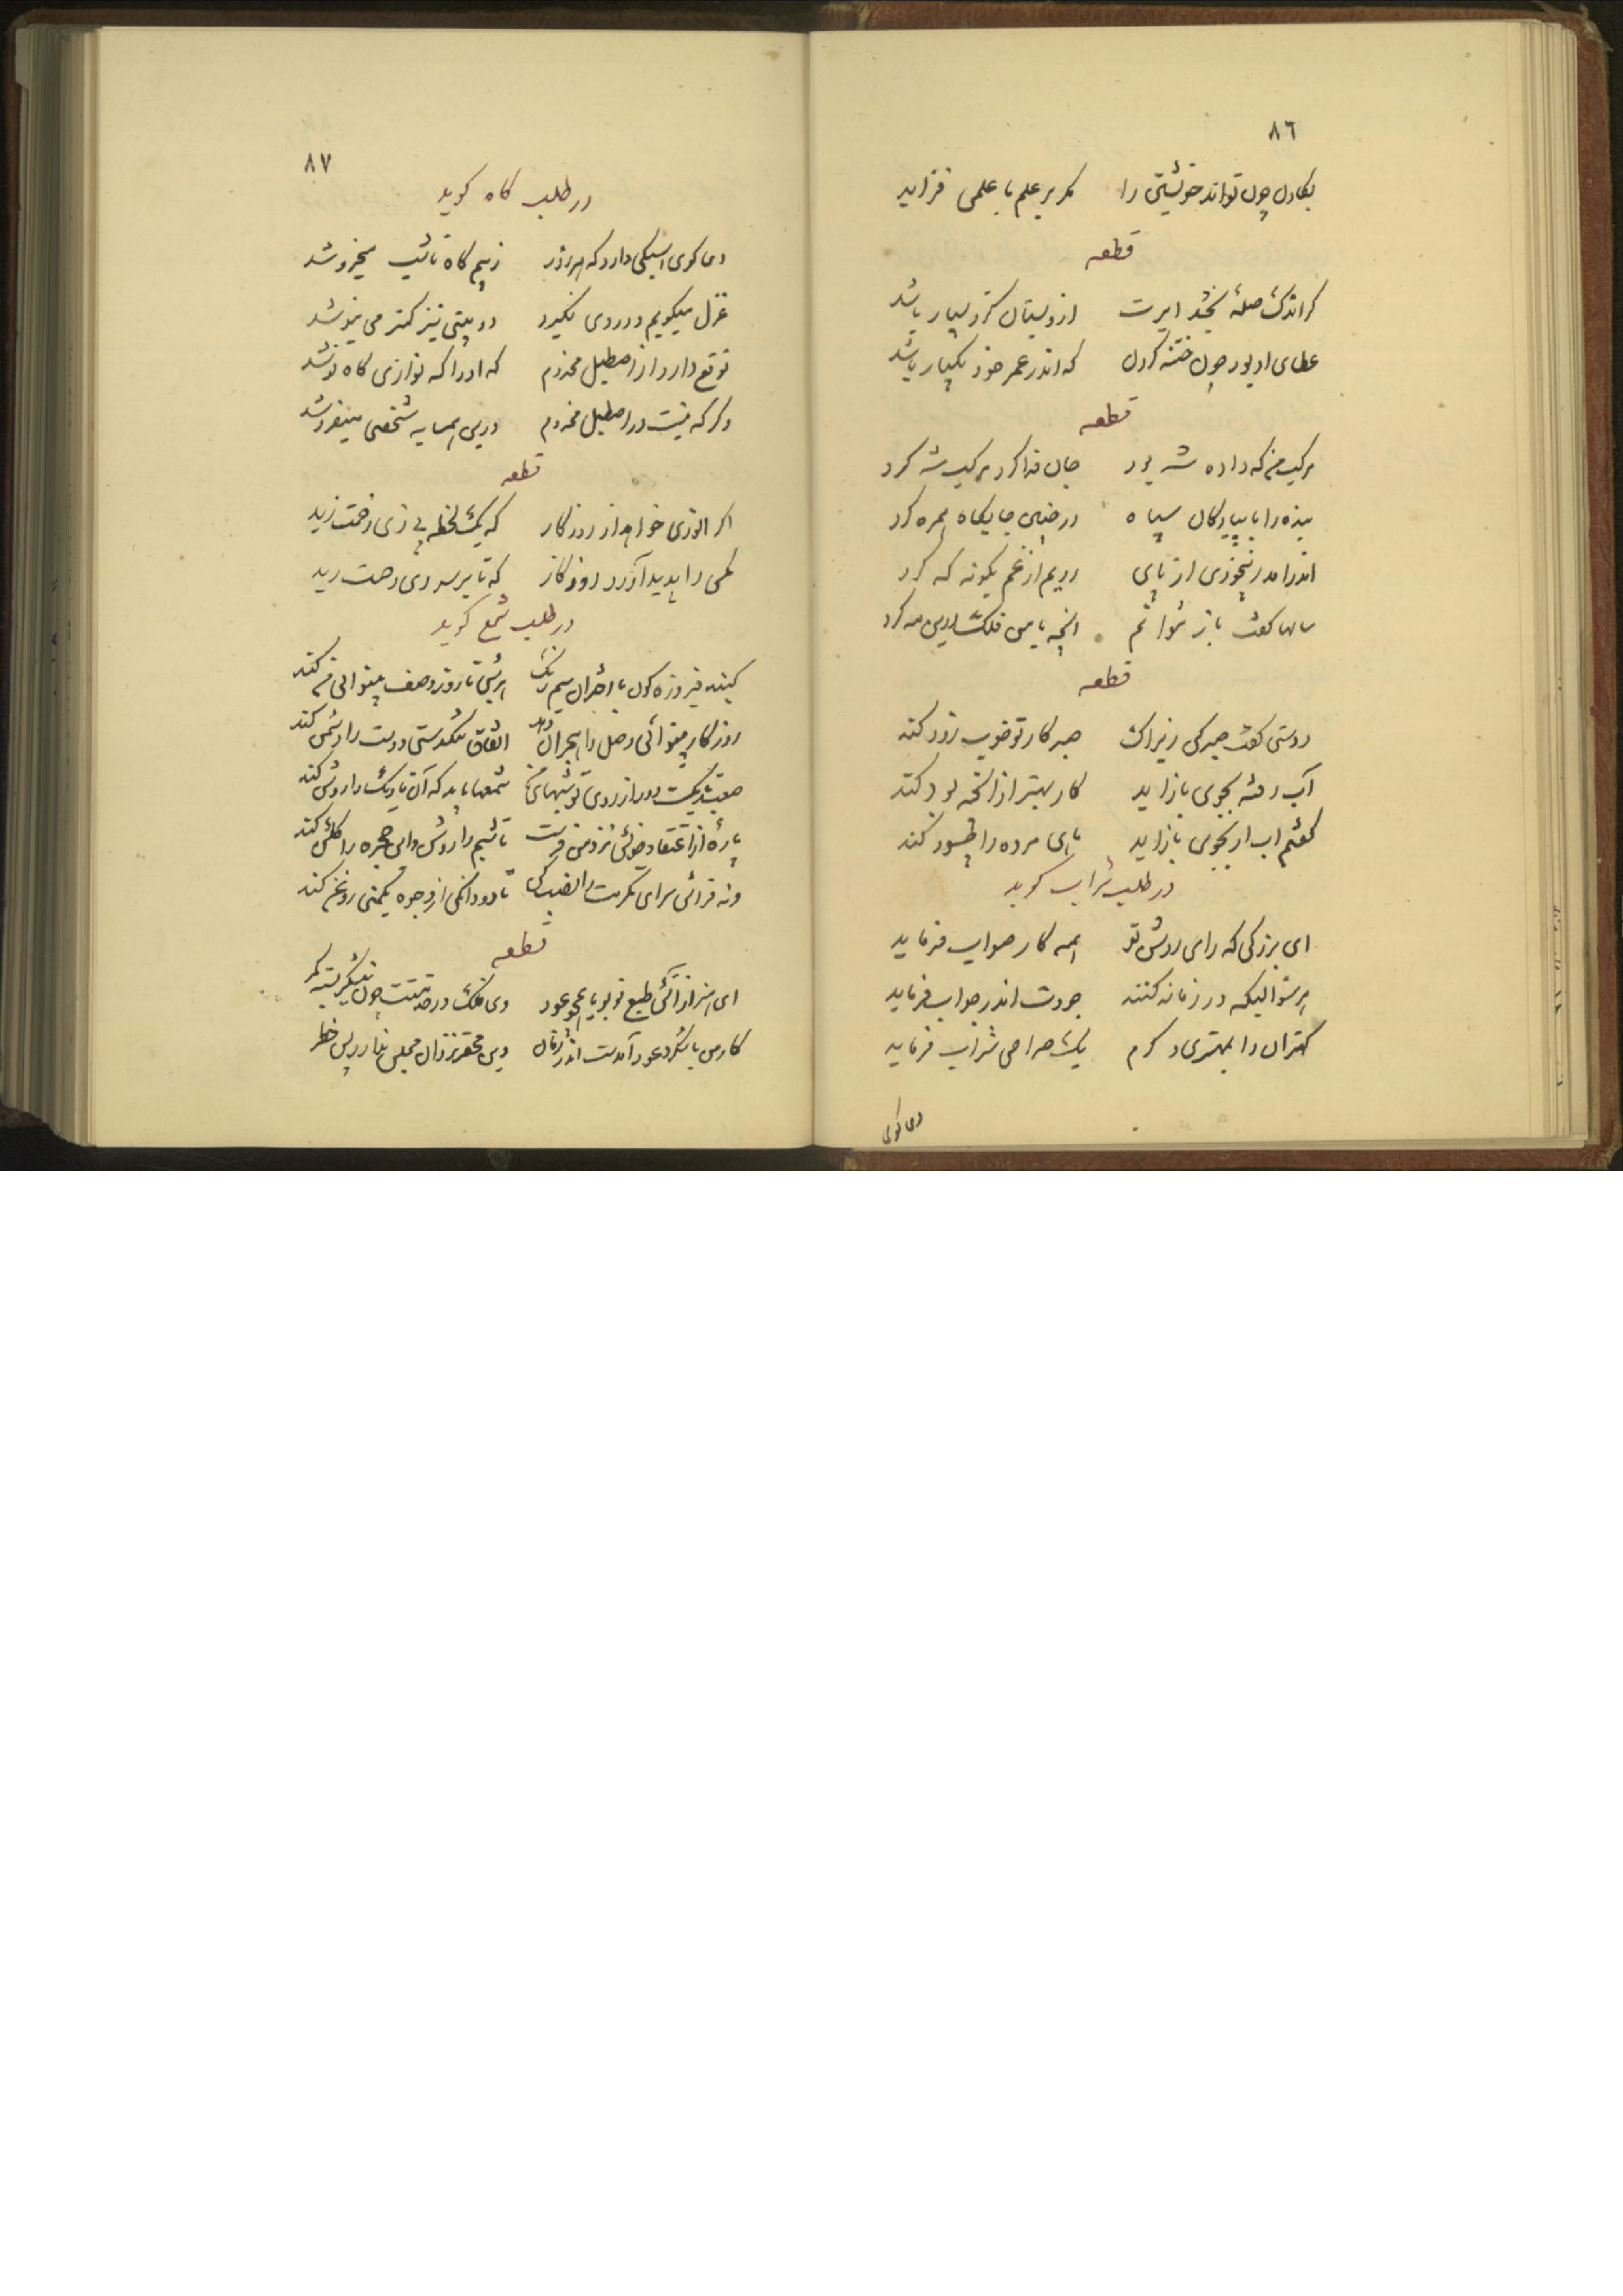 ٨٦
بکادل چون تواند خویشتن را مگر بر علم با علمی فزاید
قطعه
گر اندک صلهٔ بخشد امیرت ازو بستان کزو بسیار باشد
عطای او بود چون ختنه کردن که اندر عمر خود یکبار باشد
قطعه
مرکب من که داده شه بود جان فدا کرد مرکب شه کرد
بنده را با پیادگان سپاه در چنین جایگاه همره کرد
اندر آمد ز بیخودی از پای رویم از غم بگونه که کرد
سالها گفت باز نتوانم آنچه با من فلک درین مه کرد
قطعه
دوستی گفت صبر کن زیراک صبر کار تو خوب زود کند
آب رفته بجوی باز اید کار بهتر از آنچه بود کند
گفتم اب ار بجوی باز اید ماهی مرده را چه سود کند
در طلب شراب گوید
ای بزرگی که رای روشن تو همه کار صواب فرماید
هر سؤالیکه در زمانه کنند جودت اندر جواب فرماید
کهتران را بمهتری و کرم یک صراحی شراب فرماید
دعا گوی
٨٧
در طلب کاه گوید
دعا گوی اسبکی دارد که هر روز ز بهر کاه تا شب میخروشد
غزل میگویم و در وی نگیرد دو بیتی نیز کمتر می نیوشد
توقع دارد از اصطبل مخدوم که او را که توازی کاه نوشد
وگر که نیست در اصطبل مخدوم درین همسایه شخصی میفروشد
قطعه
اگر انوری خواهد از روزگار که یک لحظه بی زای زحمت زید
مگس را پدید آورد روزگار که تا بر سر وی رحمت رید
در طلب شمع گوید
گنبد فیروزه گون با اختران سیم رنگ هر شبی تا روز وصف بینوائی من کند
روزگار بینوائی وصل را هجران دهد اتفاق تنگدستی دوست را دشمن کند
صعب تاریکست دور از روی تو شبهای من شمعها باید که آن تاریک را روشن کند
پارهٔ از اعتقاد خویش نزد من فرست تا شبم را روشن و این حجره را گلشن کند
ورنه فراش سرای مکرمت را نصب کن تا دو دانگی از وجوه یکمنی روغن کند
قطعه
ای هنر از آتش طبع تو بویا همچو عود وی فلک در خدمتت چون نیشکر بسته کمر
کار من با شکر و عود آمدست اندر زمان وین محقر نزد آن مجلس ندارد بس خطر